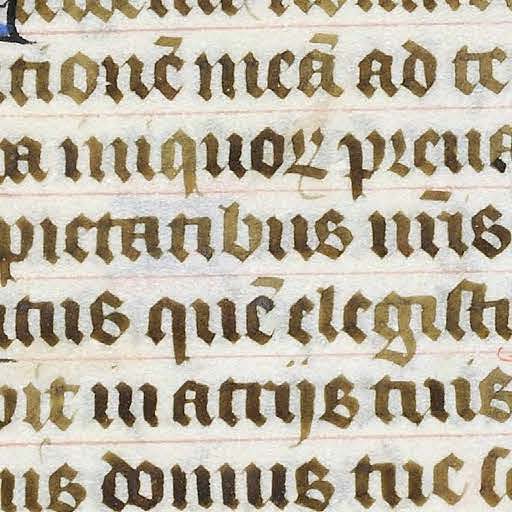 tionē meā ad te
a iniquoꝝ preua
pietatibus nr̄is
atus quē elegisti
bit in atrijs tuis
nis domus tue